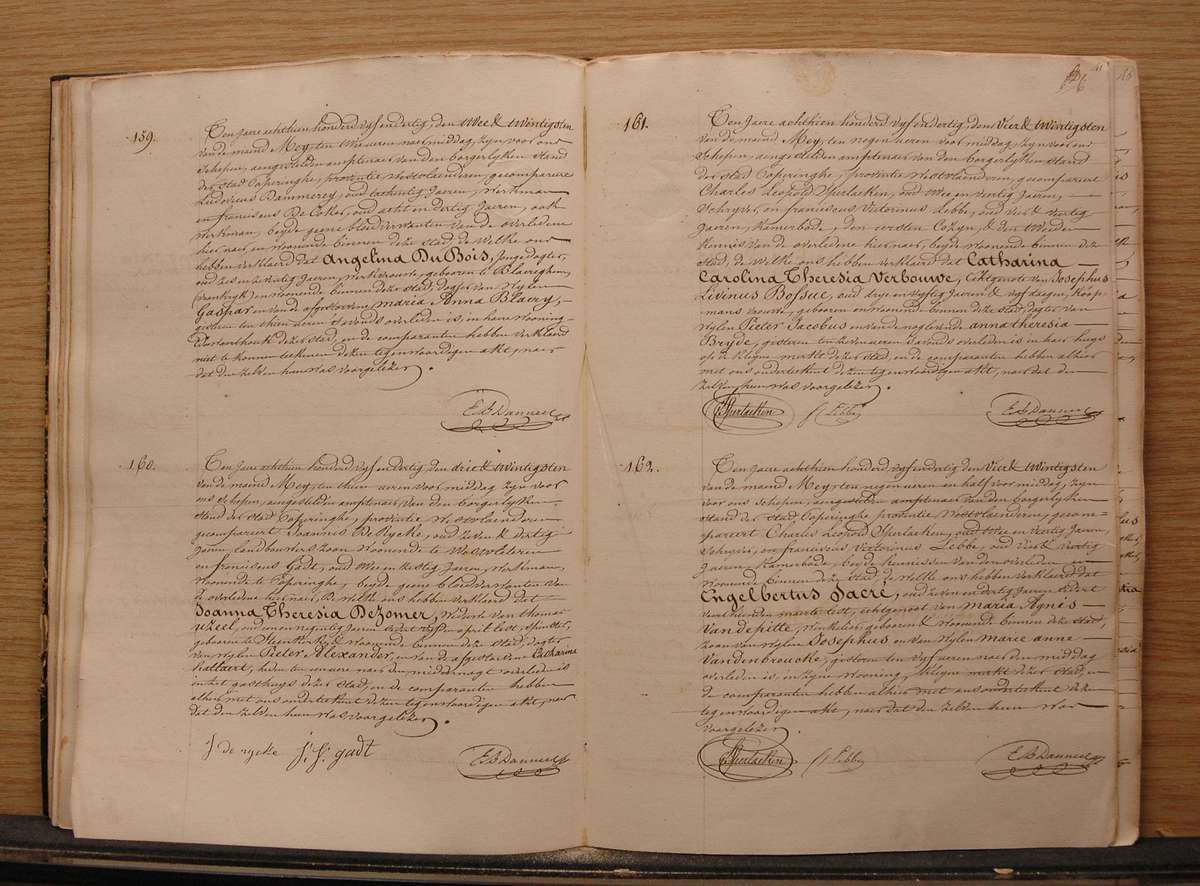 159.
Ten Jaere achthien honderd vyf en dertig, den twee & twintigsten
van de maend Mey, ten uren naer middag, zyn voor ons
Schepen, aengestelden amptenaer van den borgerlyken stand
der stad Poperinghe, provintie Westvlaenderen, gecompareert
Ludovicus Dammerey, oud tachentig Jaeren, Werkman
en franciscus De Coker, oud acht en dertig Jaeren, ook
Werkman, beyde geene bloedverwanten van de overledene
hier naer, en woonende binnen deze stad, de Welke ons
hebben verklaerd dat Angelina Du Bois, Jonge dogter,
oud zes en Jaeren, Werkvrouwe, geboren te Blaireghem,
(vrankryk) en woonende binnen deze stad, dogter van Wylen
Gaspar en van de afgestorvene maria Anna Blaery,
gisteren ten thien uren s'avonds overleden is, in haere wooning
deser stad, en de comparanten hebben verklaerd
niet te konnen teekenen dezen tegenwoordigen akt, naer
dat den zelven hun was voorgelezen.
E. B. Danneel
160.
Ten Jaere achthien honderd vyf en dertig, den drie & twintigsten
van de maend Mey, ten thien uren voor middag, zyn voor
ons schepen, aengestelden amptenaer van den borgerlyken
stand der stad Poperinghe, provintie Westvlaenderen
gecompareert Joannes De Rycke, oud zeven & dertig
Jaeren, landbouwers zoon woonende te Westvleteren
en franciscus Gadt, oud twee en tsestig Jaeren, Werkman,
woonende te Poperinghe, beyde geene bloedverwanten van
de overledene hier naer, de Welke ons hebben verklaerd dat
Joanna Theresia DeZomer, Weduwe van thomas
oud een en negentig Jaeren sedert vyfsten april lest, spinster,
geboren te Steenkerke & woonende binnen deze stad, dogter
van Wylen Pieter Alexander, en van de afgestorvene Catharina
Kattaert, heden ten een ure naer den middernagt overleden is
in het gasthuys dezer stad, en de comparanten hebben
alhier met ons onderteekent dezen tegenwoordigen akt, naer
dat den zelven hun was voorgelezen.
J de rycke F: F: gadt
E. B. Danneel
161.
Ten Jaere achthien honderd vyf en dertig, den vier & twintigsten
van de maend Mey, ten negen uren voor middag, zyn voor ons
Schepen, aengestelden amptenaer van den borgerlyken stand
der stad Poperinghe, provintie Westvlaenderen, gecompareert
Charles Leopold Sperlaeken, oud twee en veertig Jaeren,
Schryver, en franciscus Victorinus Lebbe, oud vier & veertig
Jaeren, Kamerbode, den eersten Cozyn, & den tweeden
Kennis van de overledene hier naer, beyde woonende binnen deze
stad, de Welke ons hebben verklaerd dat Catharina
Carolina Theresia Verbouwe, Echtgenote van Josephus
Livinus Bossue, oud drye en vyftig Jaeren & vyf daegen, Koop-
mans vrouwe, geboren en woonende binnen deze stad, dogter van
Wylen Pieter Jacobus en van de nog levende anna theresia
Bryde, gisteren ten zeven uren s'avonds overleden is in haer huys
op de Kleyne merkt dezer stad, en de comparanten hebben alhier
met ons onderteekent dezen tegenwoordigen akt, naer dat den
zelven hun was voorgelezen.
Sperlaeken
Lebbe
E. B. Danneel
162.
Ten Jaere achthien honderd vyf en dertig den vier & twintigsten
van de maend Mey, ten negen uren en half voor middag, zyn
voor ons Schepen, aengestelden amptenaer van den borgerlyken
stand der stad Poperinghe provintie Westvlaenderen, gecom=
pareert Charles Leopold Sperlaeken, oud twee en veertig Jaeren,
Schryver, en franciscus Victorinus Lebbe, oud vier & veertig
Jaeren, Kamerbode, beyde Kennissen van den overleden en
woonende binnen deze stad, de Welke ons hebben verklaerd dat
Engelbertus Sacre, oud zeven en dertig Jaeren sedert
maerte lest, echtgenoot van maria Agnes
Vandepitte, Winkelier, geboren & woonende binnen deze stad,
zoon van Wylen Josephus en van Wylen marie anne
Vandenbroucke, gisteren ten vyf uren naer den middag
overleden is, in zyne wooning, Kleyne markt dezer stad, en
de comparanten hebben alhier met ons onderteekent dezen
tegenwoordigen akt, naer dat den zelven hun was
voorgelezen.
Sperlaeken
Lebbe
E. B. Danneel